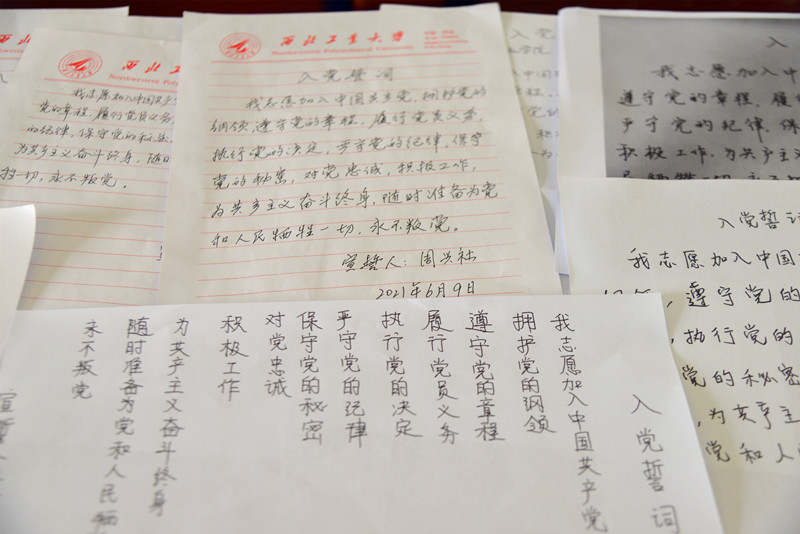 西北工
Northwestern Po
我志愿加入中国共产
党的章程,履行党员义务,
的纪律,保守党的秘密,
为共产主义奋斗终身,随时
牲一切,永不叛党。
西北工业大学
Northwestern Polytechnical University
入党誓词
我志愿加入中国共产党,拥护党的
纲领,遵守党的章程,履行党员义务,
执行党的决定,严守党的纪律,保守
党的秘密,对党忠诚,积极工作,
为共产主义奋斗终身,随时准备为党
和人民牺牲一切,永不叛党。
宣誓人:周兴社
2021年6月9日
入党
学院
入
我志愿加入
遵守党的章程,履
严守党的纪律,保
积极工作,为共产主
入党誓词
我志愿加入中国
,遵守党的
,执行党的
党的秘密
,为共产主
党和人
入党誓词
我志愿加入中国共产党
拥护党的纲领
遵守党的章程
履行党员义务
执行党的决定
严守党的纪律
保守党的秘密
对党忠诚
积极工作
为共产主义奋斗终身
随时准备为党和人民牺
永不叛党
宣誓